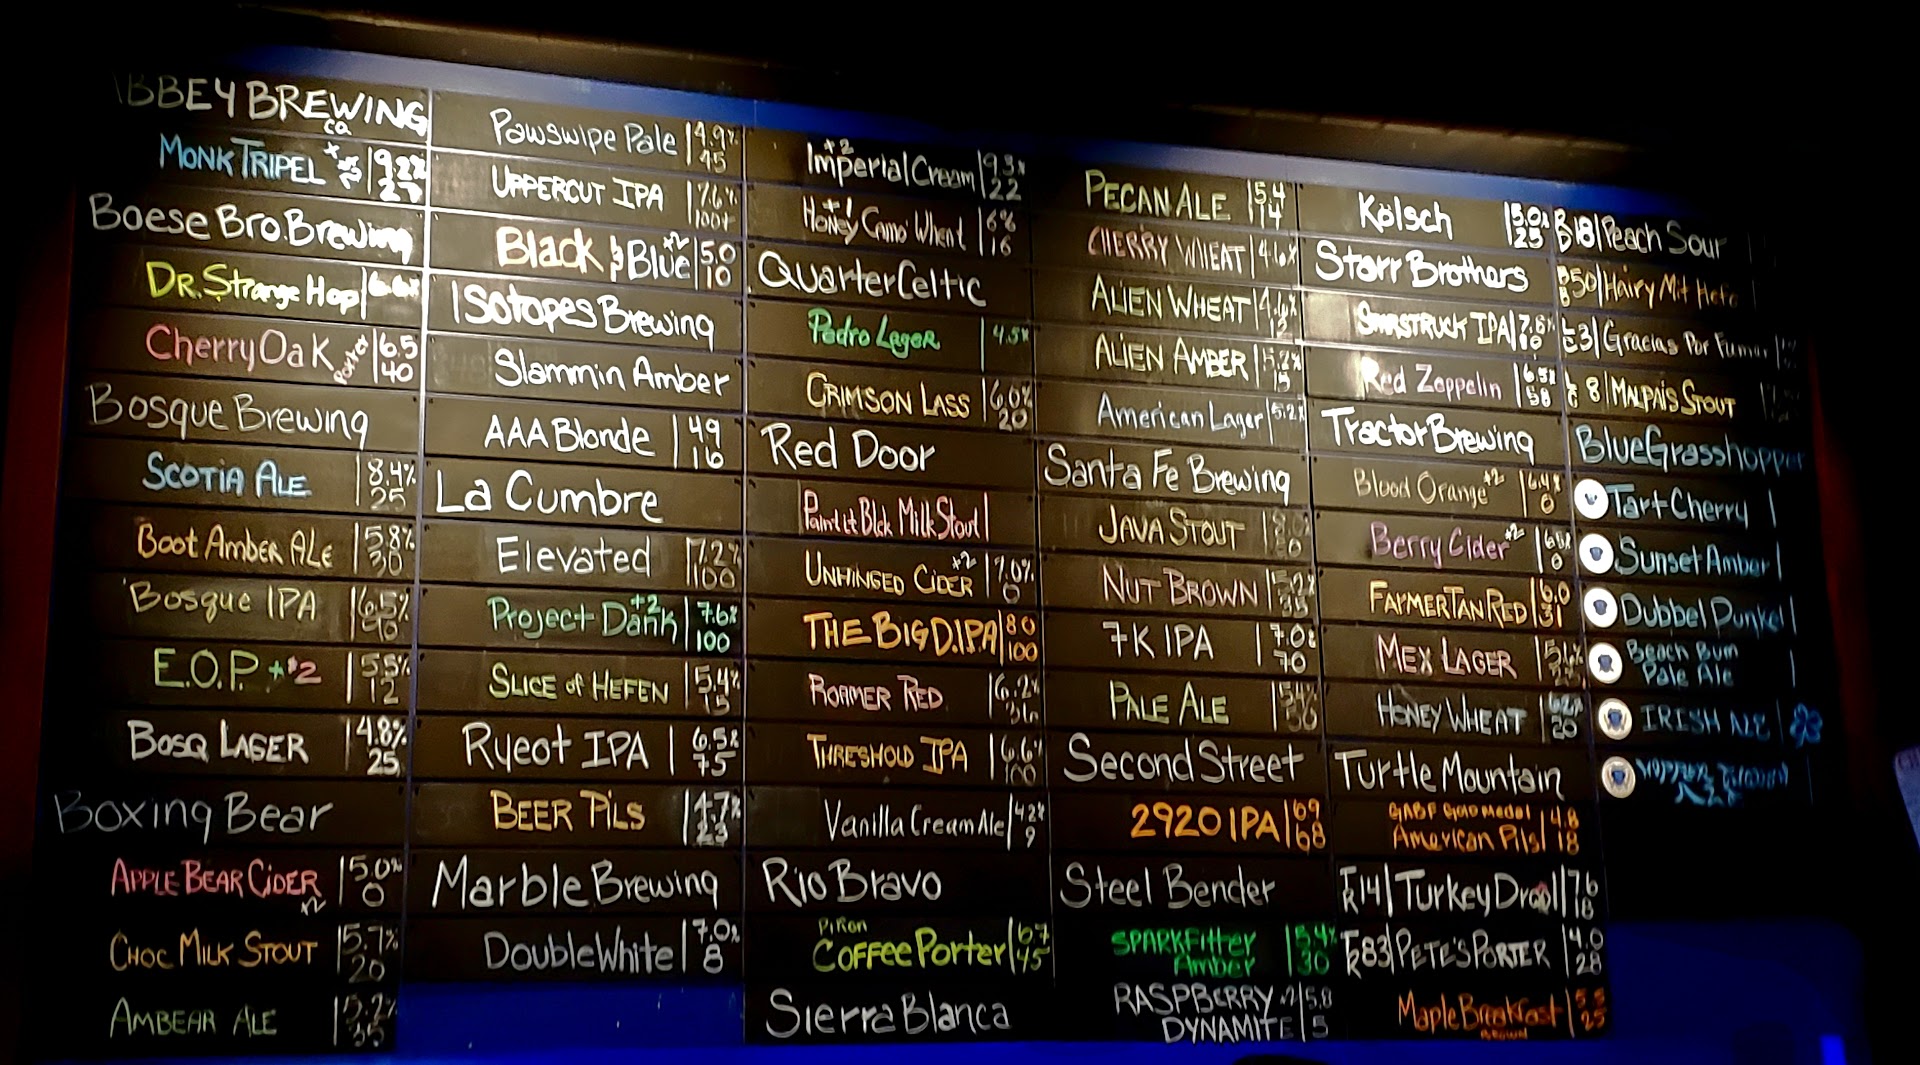 BBEY BREWING
CO
MONK TRIPEL 9.2%
27
Boese Bro. Brewing
DR. Strange Hop 6.6%
Cherry Oak Porter 6.5
40
Bosque Brewing
SCOTIA ALE 8.4%
25
Boot Amber ALe 5.8%
30
Bosque IPA 6.5%
E.O.P. +$2 5.5%
12
BOSQ LAGER 4.8%
25
Boxing Bear
APPLE BEAR CIDER 5.0%
+2 0
CHOC MILK STOUT 5.7%
20
AMBEAR ALE 5.2%
35
Pawswipe Pale 4.9%
45
UPPERCUT IPA 7.6%
100+
Black & Blue +2 5.0
10
ISotopes Brewing
Slammin Amber
AAA Blonde 49
16
La Cumbre
Elevated 7.2%
100
+2
Project Dank 7.6%
100
SLICE of HEFEN 5.4%
15
Ryeot IPA 6.5%
75
BEER PILS 4.7%
23
Marble Brewing
Double White 7.0%
8
+2
Imperial Cream 9.3%
22
+1
Honey Camo Wheat 6%
16
Quarter Celtic
Pedro Lager 4.5%
CRIMSON LASS 6.0%
20
Red Door
Paint it Blck Milk Stout
+2
UNHINGED CIDER 7.0%
0
THE BIG D.I.PA 80
100
ROAMER RED 6.2%
THRESHOLD IPA 6.6%
100
Vanilla Cream Ale 4.2%
9
Rio Bravo
PiRon
COFFEE PORTER 6.7
45
Sierra Blanca
PECAN ALE 5.4
14
CHERRY WHEAT 4.6%
ALIEN WHEAT 4.6%
ALIEN AMBER 5.2%
15
American Lager 5.2%
Santa Fe Brewing
JAVA STOUT
NUT BROWN 5.2%
7K IPA 7.0%
70
PALE ALE 5.4%
Second Street
2920 IPA 69
68
Steel Bender
SPARKFITTER 5.4%
Amber 30
RASPBERRY +2 5.8
DYNAMITE 5
Kölsch 5.0%
25
Starr Brothers
STARSTRUCK IPA 7.6%
Red Zeppelin 6.5%
58
Tractor Brewing
Blood Orange +2 6.4%
0
Berry Cider +2
0
FARMER TAN RED 6.0
31
MEX LAGER
HONEY WHEAT
20
Turtle Mountain
GABF Gold Medal 4.8
American Pils 18
TR 14 Turkey Drool 7.6
18
TR 83 PETE'S PORTER 4.0
28
Maple Breakfast 5.5
BROWN 25
18 Peach Sour
50 Hairy Mit Hefe
LC 3 Gracias Por Fumar
LC 8 MALPAIS STOUT
Blue Grasshopper
Tart Cherry
Sunset Amber
Dubbel Dunkel
Beach Bum
Pale Ale
IRISH ALE